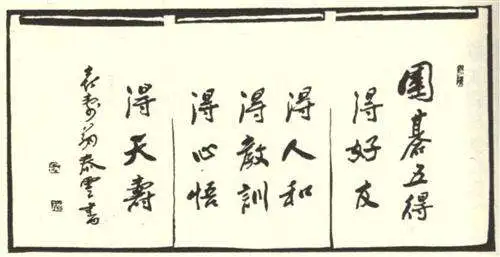 圍碁五得
得好友
得人和
得教訓
得心悟
得天壽
喜寿翁泰雲書